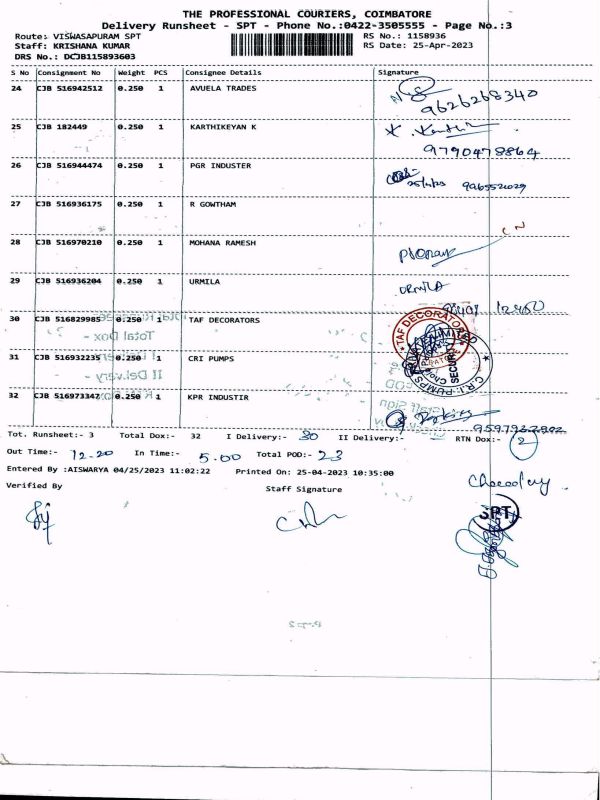 THE PROFESSIONAL COURIERS, COIMBATORE
Delivery Runsheet - SPT - Phone No.:0422-3505555 - Page No.:3
Route: VISWASAPURAM SPT RS No.: 1158936
Staff: KRISHANA KUMAR RS Date: 25-Apr-2023
DRS No.: DCJB115893603
S No Consignment No Weight PCS Consignee Details Signature
24 CJB 516942512 0.250 1 AVUELA TRADES
9626268340
25 CJB 182449 0.250 1 KARTHIKEYAN K
9790478864
26 CJB 516944474 0.250 1 PGR INDUSTER
27 CJB 516936175 0.250 1 R GOWTHAM
28 CJB 516970210 0.250 1 MOHANA RAMESH
29 CJB 516936204 0.250 1 URMILA URMILA
30 CJB 516829985 0.250 1 TAF DECORATORS TAF DECORATORS
31 CJB 516932235 0.250 1 CRI PUMPS C.R.I. PUMPS SECURITY
32 CJB 516973347 0.250 1 KPR INDUSTIR
Tot. Runsheet:- 3 Total Dox:- 32 I Delivery:- 30 II Delivery:- RTN Dox:- 2
Out Time:- 12-20 In Time:- 5.00 Total POD:- 23
Entered By :AISWARYA 04/25/2023 11:02:22 Printed On: 25-04-2023 10:35:00
Verified By Staff Signature
SPT